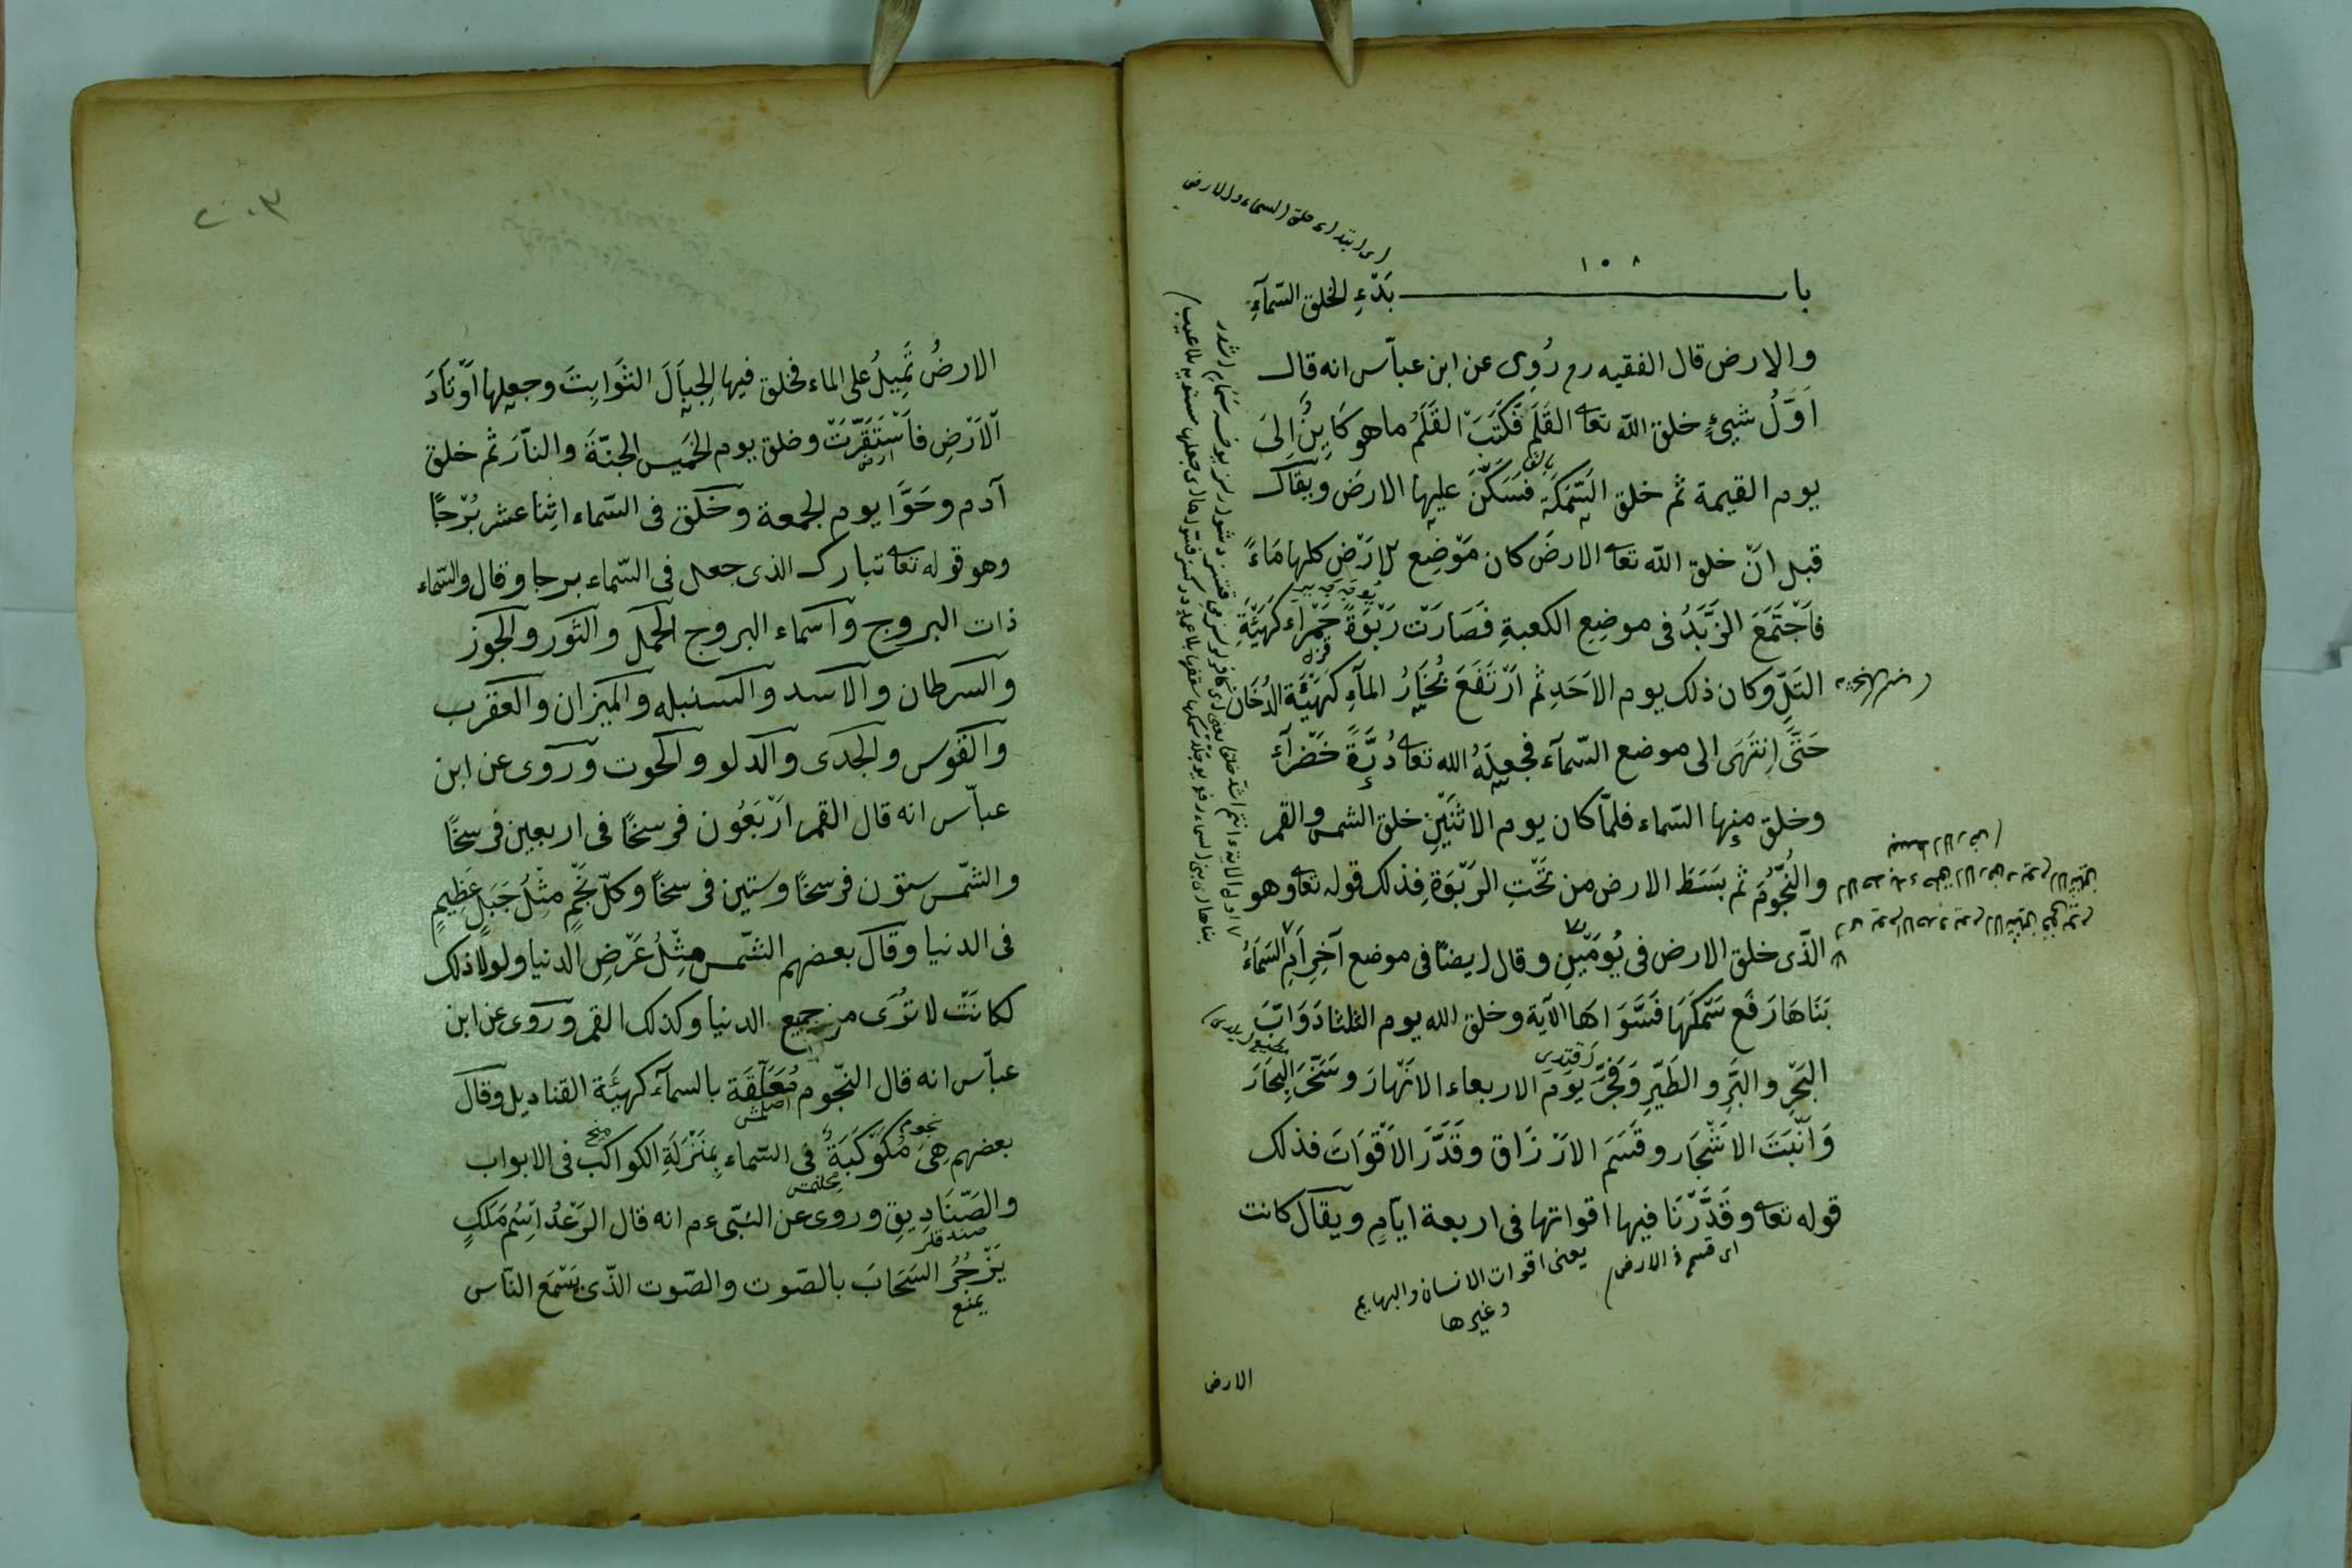 اى ابتداء خلق السماء والارض
١٥٨
باب بَدْءِ الخلق السّمآءِ
والارض قال الفقيه رح رُوِى عن ابن عبّاس انه قال
اَوَّلُ شيئٍ خلق اللّه تعا القَلَمَ فَكَتَبَ القَلَمُ ما هو كَايِنٌ اِلىَ
يوم القيمة ثم خلق السَّمَكَةَ فَسَكَّنَ عليها الارضَ ويقال
قبل انْ خلق اللّه تعا الارضَ كان مَوْضِع الارْضِ كلها مَاءً
فَاجْتَمَعَ الزَّبَدُ فى موضِعِ الكعبةِ فَصَارَتْ رَبْوَةً حَمْرَاء كَهَيْئَةِ
التَلِّ وكان ذلك يوم الاَحَدِ ثم ارْتَفَعَ بُخَارُ المآءِ كَهَيْئَةِ الدُخَان
حَتَّى اِنتَهَى الى موضع السّمآء فجعلَهُ الله تعا دُرَّةً خَضْرآءَ
وخلق منها السّماء فلمّا كان يوم الاثنَيْنِ خلق الشمس والقمر
والنُجُومَ ثم بسَطَ الارض من تَحْتِ الرَبْوَةِ فذلك قوله تعا وهو
الّذى خلق الارض فى يَوْمَيْنِ وقال ايضًا فى موضع آخر اَمِ السَّمَاءُ
بَنَاهَا رَفَع سَمْكَهَا فَسَوَّاهَا الآية وخلق الله يوم الثلثا دَوَابَّ
البَحْرِ والبَرِّ والطَيْرِ وَفَجَّرَ يَوْمَ الاربعاء الانْهارَ وسَخَّرَ البِحَارَ
وَاَنْبَتَ الاشْجَار وقَسَمَ الارْزَاق وقَدَّرَ الاَقْوَاتَ فذلك
قوله تعا وقَدَّرْنَا فيها اقواتها فى اربعة ايّامٍ ويقال كانت
اى قسم فى الارض
يعنى اقوات الانسان والبهايم
وغيرها
الارض
٢٠٣
الارضُ تَمِيلُ على الماء فخلق فيها الجِبَالَ الثوَابِتَ وجعلها اَوْتَادَ
اْلاَرْضِ فَاَسْتَقَرَّتْ وخلق يوم الخَميس الجنّةَ والنّارَ ثم خلق
آدم وحَوَّا يوم الجمعة وخلق فى السّماء اثِنا عشر بُرْجًا
وهو قوله تعا تبارك الذى جعل فى السّماء برجا وقال والسّماء
ذات البروج واسماء البروج الحمل والثور والجوز
والسرطان والاسد والسنبله والميزان والعقرب
والقوس والجدى والدلو والحوت وروى عن ابن
عبّاس انه قال القمر ارْبَعُون فرسخًا فى اربعين فرسخًا
والشمْس ستون فرسخًا وستين فرسخًا وكلّ نَجْمٍ مِثْلُ جَبَلٍ عَظِيمٍ
فى الدنيا وقال بعضهم الشمْس مِثْلُ عَرْضِ الدنيا ولولا ذلك
لكانَتْ لا تُرَى من جميع الدنيا وكذلك القمر وروى عن ابن
عبّاس انه قال النجّوم مُعَلَّقَة بالسمآء كهيئَة القناديل وقال
بعضهم هِىَ مُكَوْكَبَةٌ فى السّماء بِمَنْزَلَةِ الكواكب فى الابواب
والصّنَادِيقِ وروى عن النبّى ءم انه قال الرَعْدُ اِسْم مَلَكٍ
يَزْجُرُ السَحَابَ بالصّوت والصّوت الذّى يَسْمَع النّاس
يمنع